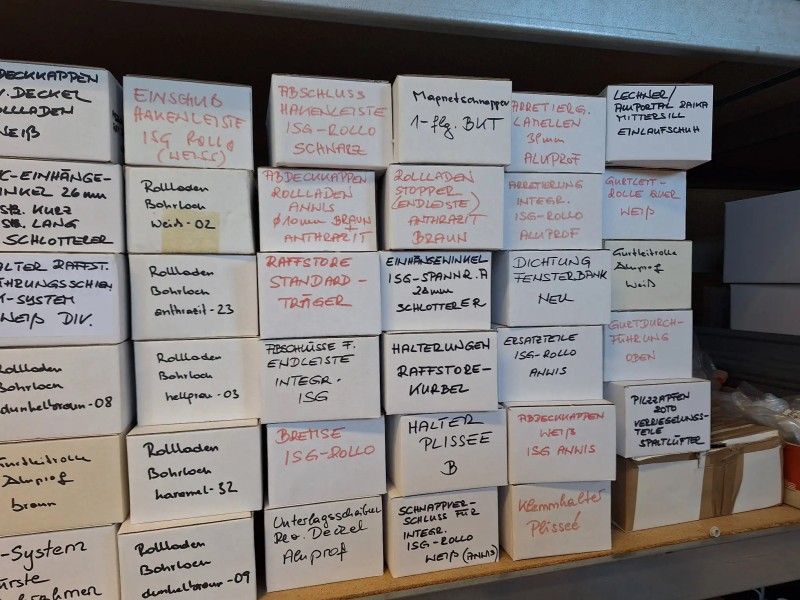 DECKKAPPEN
DECKEL
ROLLLADEN
WEIẞ
-EINHÄNGE-
WINKEL 26mm
KURZ
LANG
SCHLOTTERER
HALTER RAFFST.
FÜHRUNGSSCHIEN
-SYSTEM
WEIẞ DIV.
Rollladen
Bohrloch
dunkelbraun-08
Gurtleitrolle
Aluprof
braun
-System
Bürste
EINSCHUB
HAKENLEISTE
ISG ROLLO
(WEISS)
Rollladen
Bohrloch
Weiß-02
Rollladen
Bohrloch
anthrazit-23
Rollladen
Bohrloch
hellgrau-03
Rollladen
Bohrloch
karamel-32
Rollladen
Bohrloch
dunkelbraun-09
ABSCHLUSS
HAKENLEISTE
ISG-ROLLO
SCHWARZ
ABDECKKAPPEN
ROLLADEN
ANNIS
Ø10mm BRAUN
+
ANTHRAZIT
RAFFSTORE
STANDARD-
TRÄGER
ABSCHLÜSSE F.
ENDLEISTE
INTEGR.
ISG
BREMSE
ISG-ROLLO
Unterlagsscheiben
Rev. Deckel
Aluprof
Magnetschnapper
1-flg. BKT
ROLLADEN
STOPPER
(ENDLEISTE)
ANTHRAZIT
BRAUN
EINHÄNGEWINKEL
ISG-SPANNR.A
28mm
SCHLOTTERER
HALTERUNGEN
RAFFSTORE-
KURBEL
HALTER
PLISSEE
B
SCHNAPPVER-
SCHLUSS FÜR
INTEGR.
ISG-ROLLO
WEIẞ (ANNIS)
ARRETIERG.
LAMELLEN
38mm
ALUPROF
ARRETIERUNG
INTEGR.
ISG-ROLLO
ALUPROF
DICHTUNG
FENSTERBANK
NEU
ERSATZTEILE
ISG-ROLLO
ANNIS
ABDECKKAPPEN
WEIẞ
ISG ANNIS
Klemmhalter
Plisseé
LECHNER/
ALUPORTAL RAIKA
MITTERSILL
EINLAUFSCHUH
GURTLEIT-
ROLLE
WEIẞ
Gurtleitrolle
Aluprof
Weiß
GURTDURCH-
FÜHRUNG
OBEN
PILZZAPFEN
ROTO
VERRIEGELUNGS-
TEILE
SPALTLÜFTER